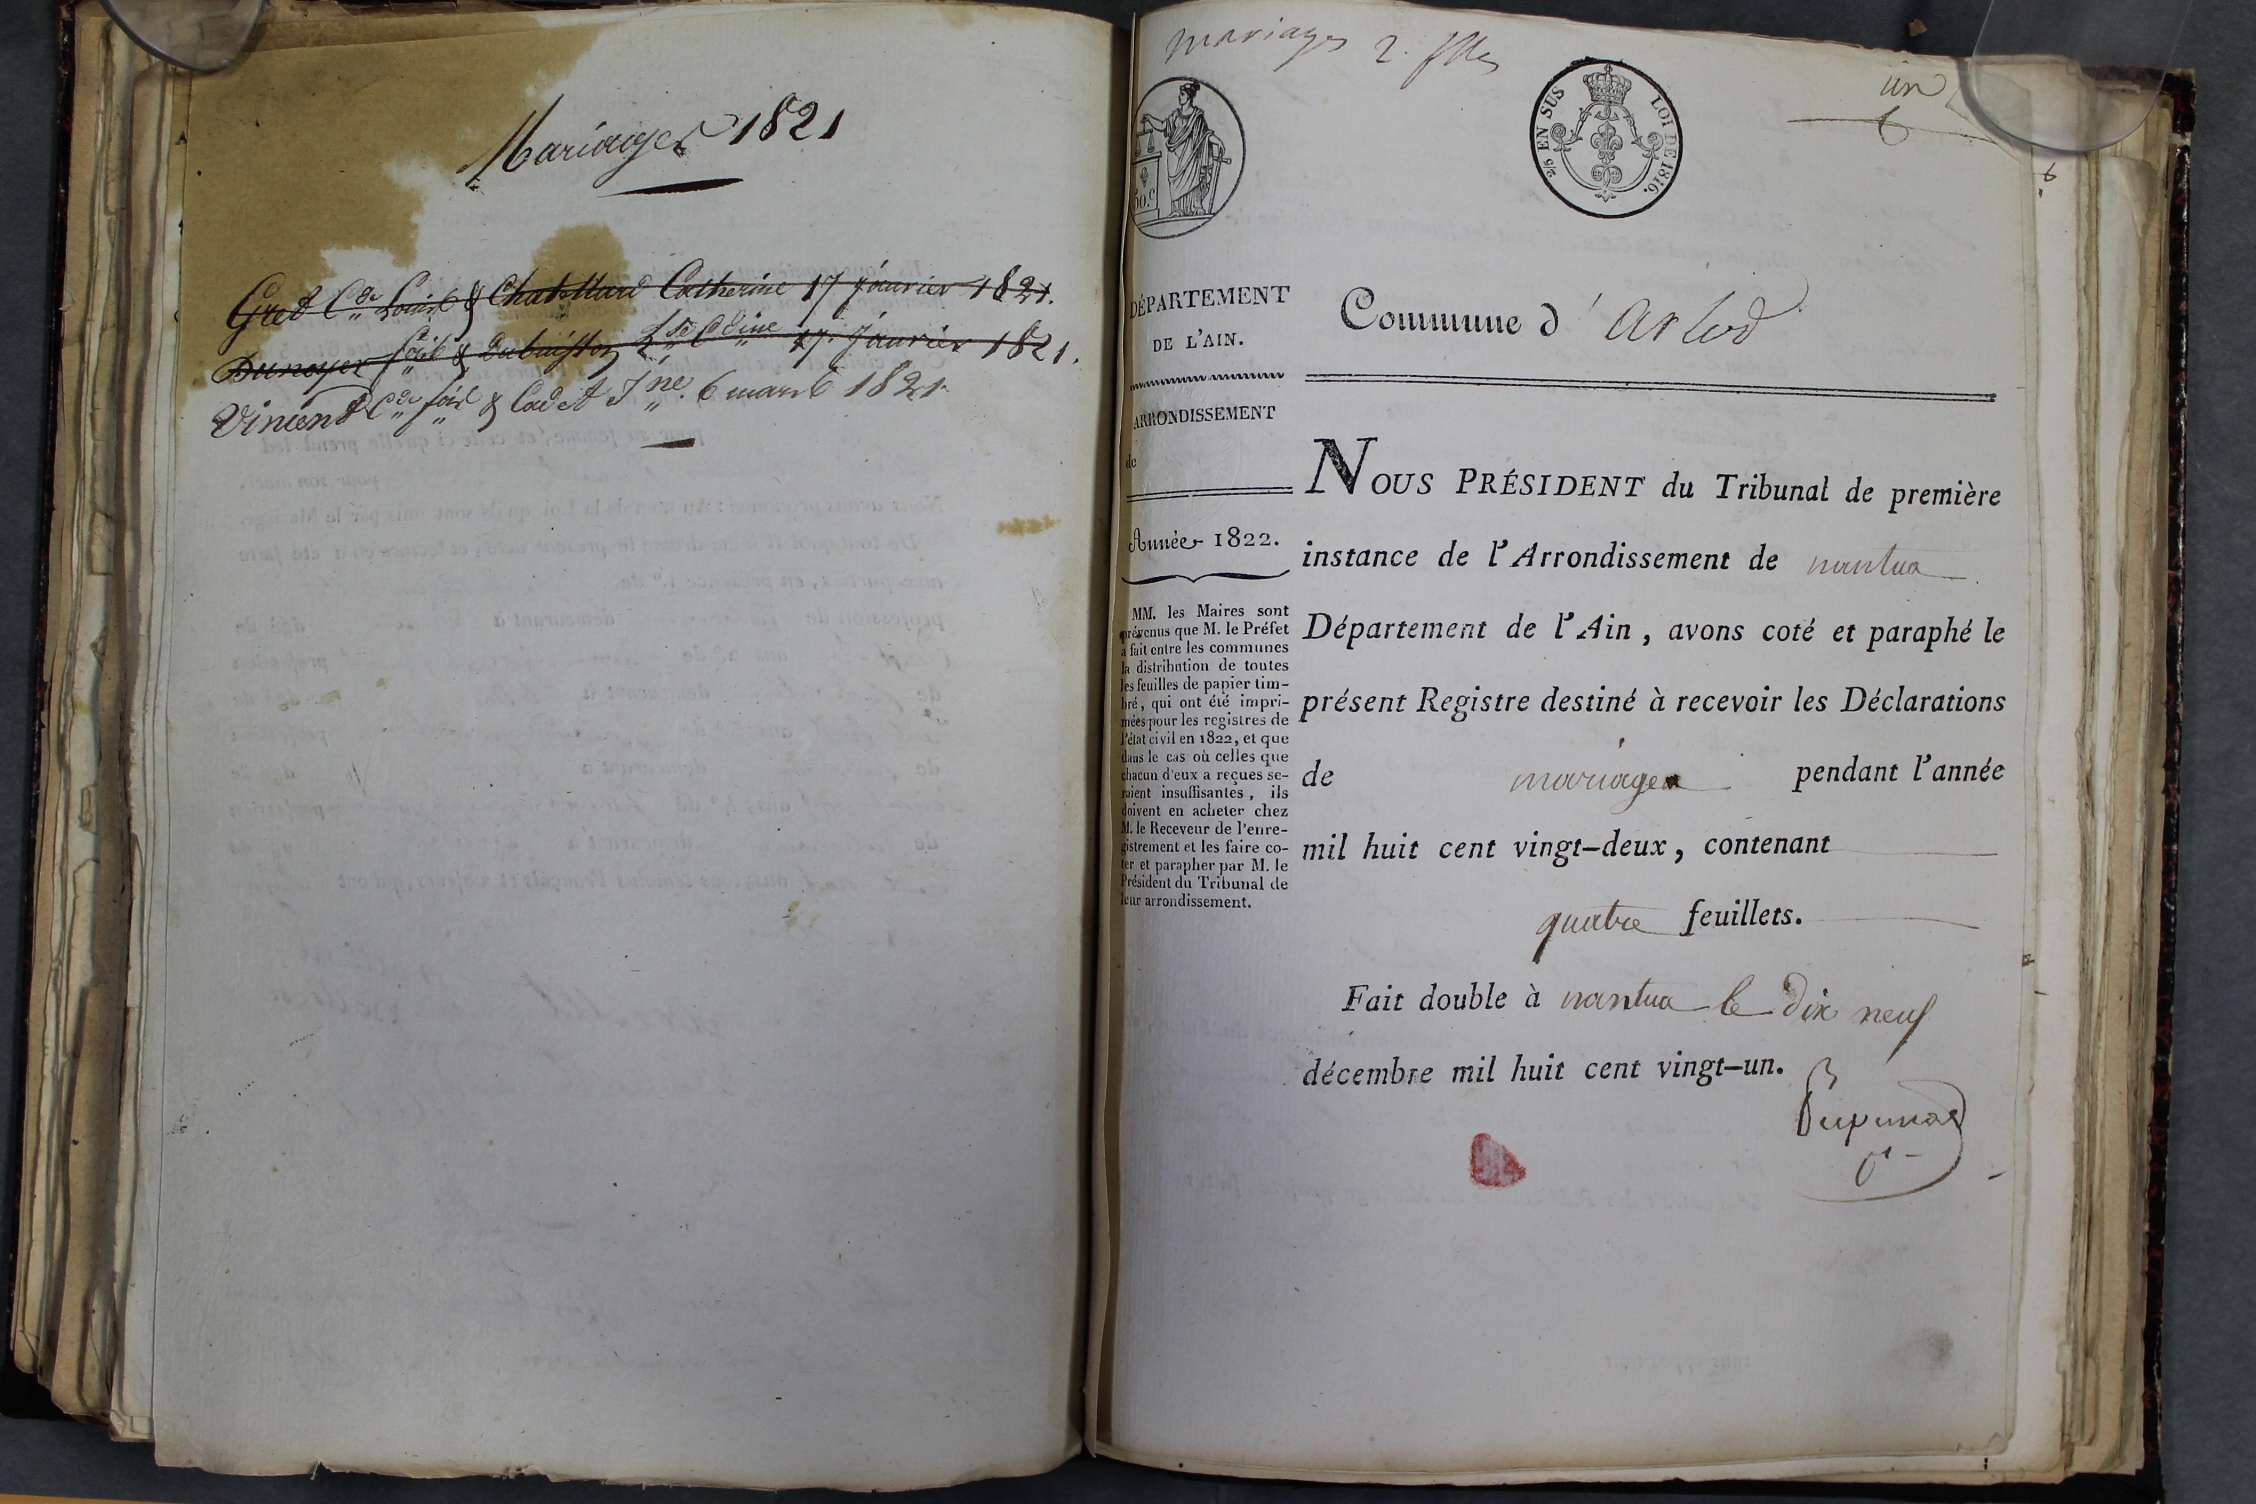 Mariages 1821
Gret C.de Louis & Chatillard Catherine 17 janvier 1821.
Dunoyer & 17. Janvier 1821.
Vincent C.de & Cadet J.ne 6 mars 1821.
mariages 2.
un
2/5 EN SUS LOI DE 1816.
50.C
DÉPARTEMENT
DE L'AIN.
ARRONDISSEMENT
de
Année 1822.
MM. les Maires sont
prévenus que M. le Préfet
a fait entre les communes
la distribution de toutes
les feuilles de papier tim-
bré, qui ont été impri-
mées pour les registres de
l'état civil en 1822, et que
dans le cas où celles que
chacun d'eux a reçues se-
roient insuffisantes, ils
doivent en acheter chez
M. le Receveur de l'enre-
gistrement et les faire co-
ter et parapher par M. le
Président du Tribunal de
leur arrondissement.
Commune d'Arlod
NOUS PRÉSIDENT du Tribunal de première
instance de l'Arrondissement de nantua
Département de l'Ain, avons coté et paraphé le
présent Registre destiné à recevoir les Déclarations
de mariages pendant l'année
mil huit cent vingt-deux, contenant
quatre feuillets.
Fait double à nantua le dix neuf
décembre mil huit cent vingt-un.